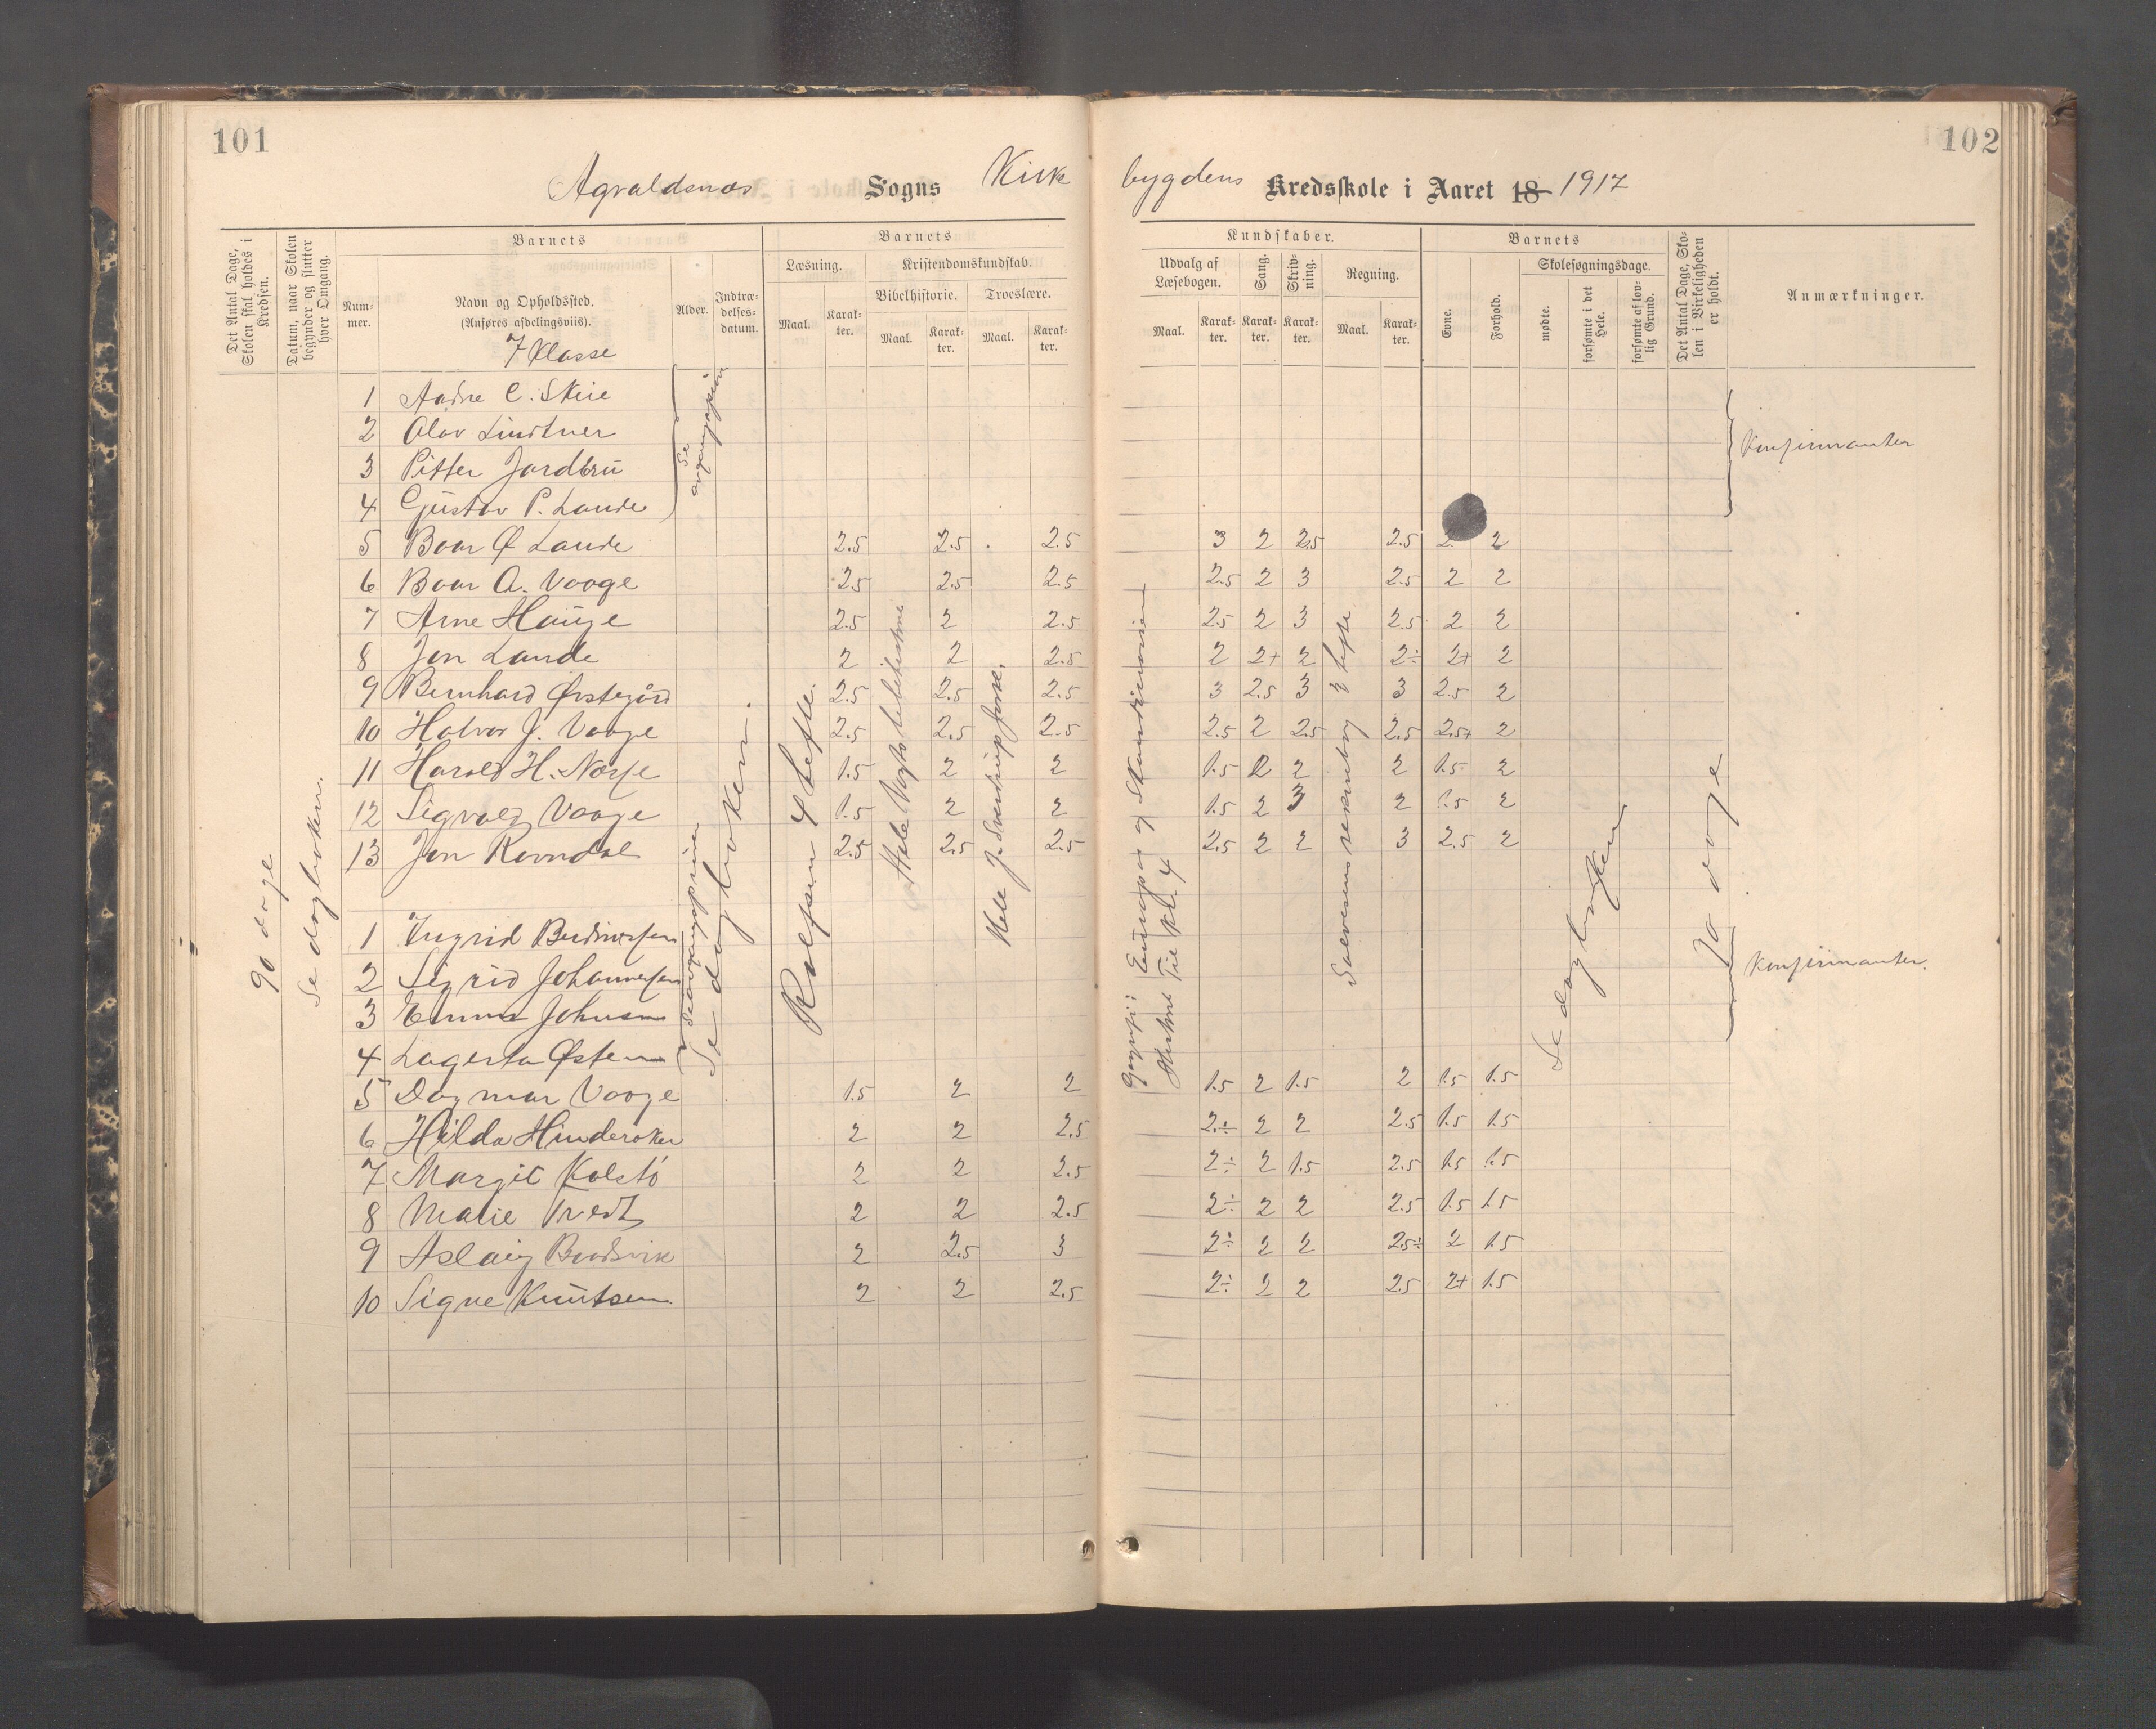 101
Agvaldsnes Sogns Kirke
Det Antal Dage, Skolen skal holdes i Kredsen.
Datum, naar Skolen begynder og slutter hver Omgang.
Barnets
Num-mer.
Navn og Opholdssted.
(Anføres afdelingsviis).
7 Klasse
Alder.
Indtræ-delses-datum.
Barnets
Læsning.
Kristendomskundskab.
Bibelhistorie.
Troeslære.
Maal.
Karak-ter.
Maal.
Karak-ter.
Maal.
Karak-ter.
90 dage
Se dagboken.
1 Andre C. Skeie
2 Olav Lindtner
3 Pitter Jordbru
4 Gustav P. Lande
Se avgangspr.
5 Boar Ø Lande 2.5 2.5 2.5
6 Boar A. Vaage 2.5 2.5 2.5
7 Arne Hauge 2.5 2 2.5
8 Jon Lande 2 2 2.5
9 Bernhard Østegård 2.5 2.5 2.5
10 Halvor J. Vaage 2.5 2.5 2.5
11 Harald H. Norse 1.5 2 2
12 Sigvald Vaage 1.5 2 2
13 Jon Ravndal 2.5 2.5 2.5
Se dagboken.
Rolfsen 4 hefte.
Hele Vogts bibelhistorie
Hele J. Sverdrups fork.
1 Ingrid
2 Sigrid Johannesen
3 Emma Johnsen
4 Lagerta Østen
5 Dagmar Vaage 1.5 2 2
6 Hilda Hinderaker 2 2 2.5
7 Margit Kolstö 2 2 2.5
8 Marie Tveit 2 2 2.5
9 Aslaug Bordvik 2 2.5 3
10 Signe Knutsen 2 2 2.5
102
bygdens Kredsskole i Aaret 18 1917
Kundskaber.
Udvalg af Læsebogen.
Sang.
Skriv-ning.
Regning.
Maal.
Karak-ter.
Karak-ter.
Karak-ter.
Maal.
Karak-ter.
Barnets
Evne.
Forhold.
Skolesøgningsdage.
mødte.
forsømte i det Hele.
forsømte af lov-lig Grund.
Det Antal Dage, Sko-len i Virkeligheden er holdt.
Anmærkninger.
Konfirmanter
3 2 2.5 2.5 2 2
2.5 2 3 2.5 2 2
2.5 2 3 2.5 2 2
2 2+ 2 2÷ 2+ 2
3 2.5 3 3 2.5 2
2.5 2 2.5 2.5 2.5+ 2
1.5 2 2 2 1.5 2
1.5 2 3 2 1.5 2
2.5 2 2 3 2.5 2
Geografi: Europa og Skandinavien
Historie Til kl. 4
Salvesens regnebog 3 hefte
Se dagboken
70 dage
Konfirmanter.
1.5 2 1.5 2 1.5 1.5
2÷ 2 2 2.5 1.5 1.5
2÷ 2 1.5 2.5 1.5 1.5
2÷ 2 2 2.5 1.5 1.5
2÷ 2 2 2.5÷ 2 1.5
2÷ 2 2 2.5 2+ 1.5